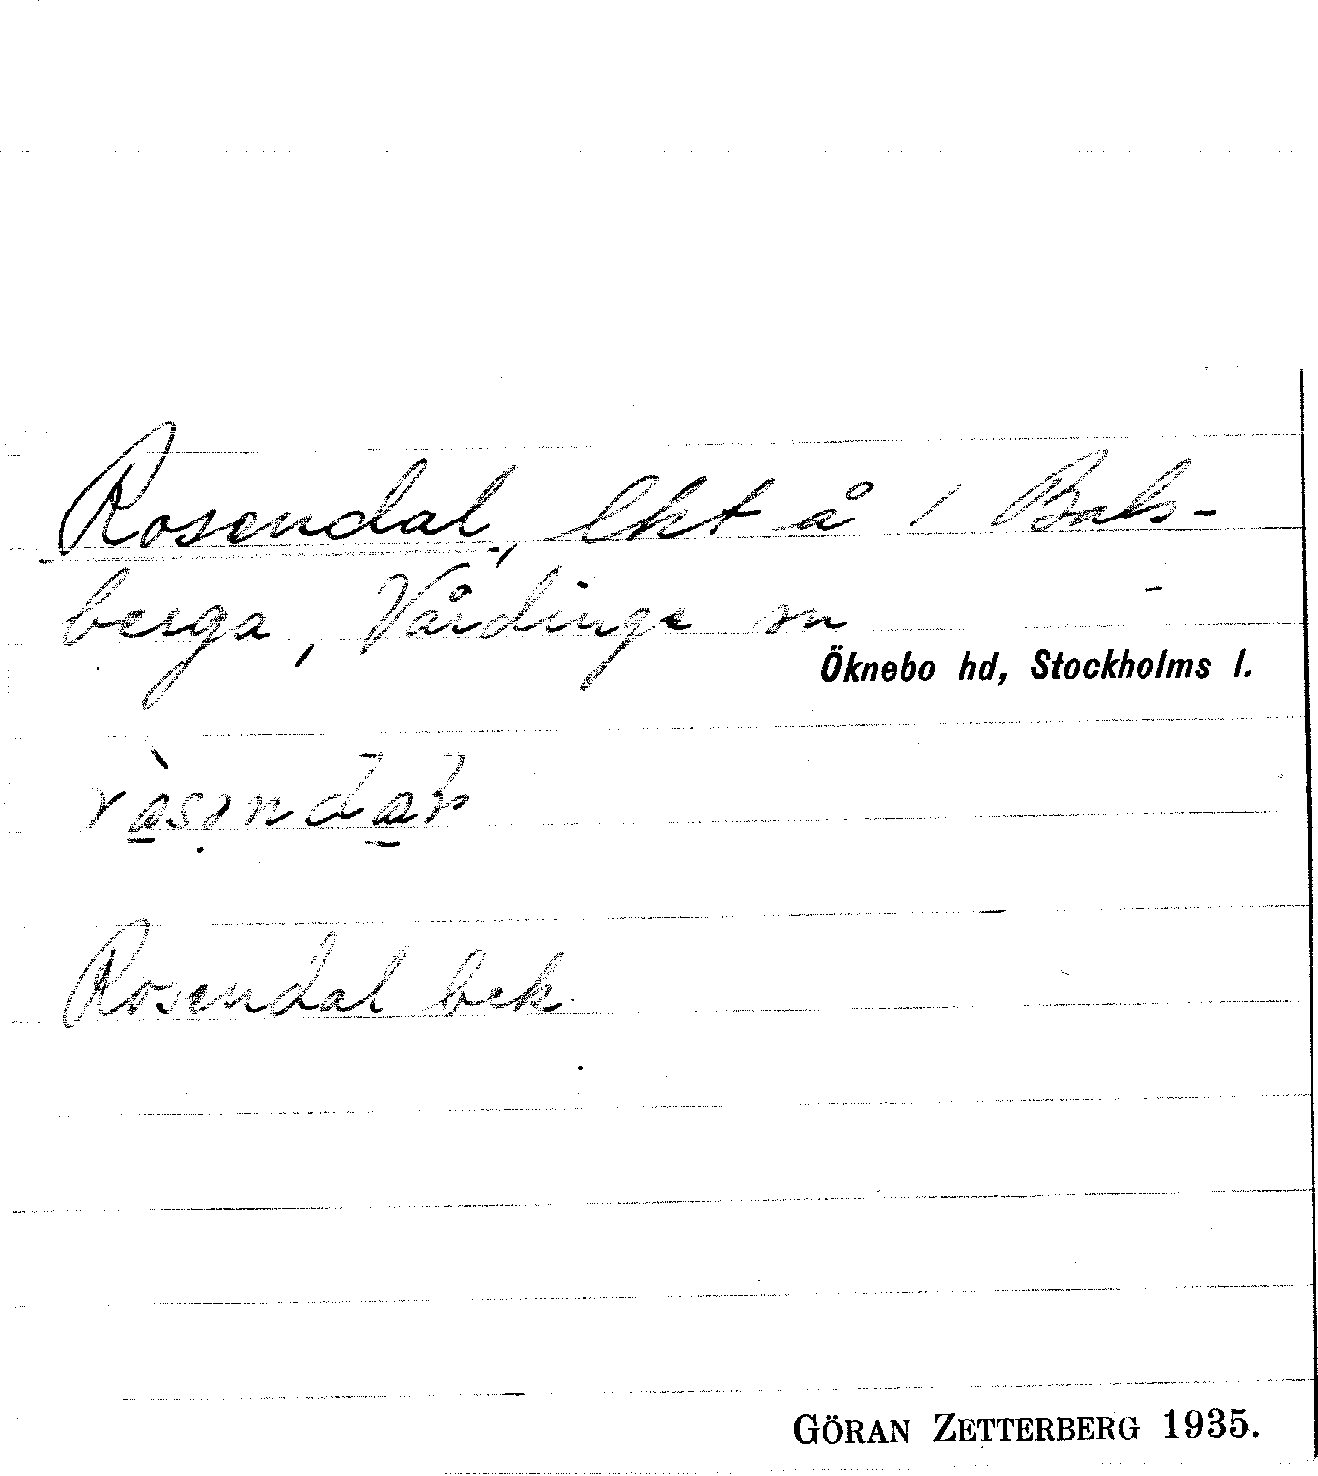 Rosendal, lht å 1 Bals-
berga, Vårdinge sn
Öknebo hd, Stockholms l.
Rosendal bek.
GÖRAN ZETTERBERG 1935.